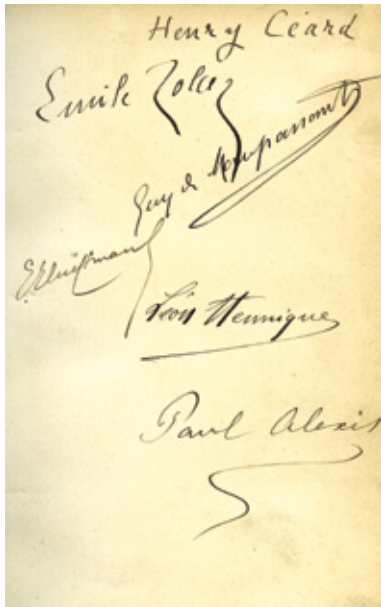 Henry Céard
Emile Zola
Guy de Maupassant
Huÿsmans
Léon Hennique
Paul Alexis